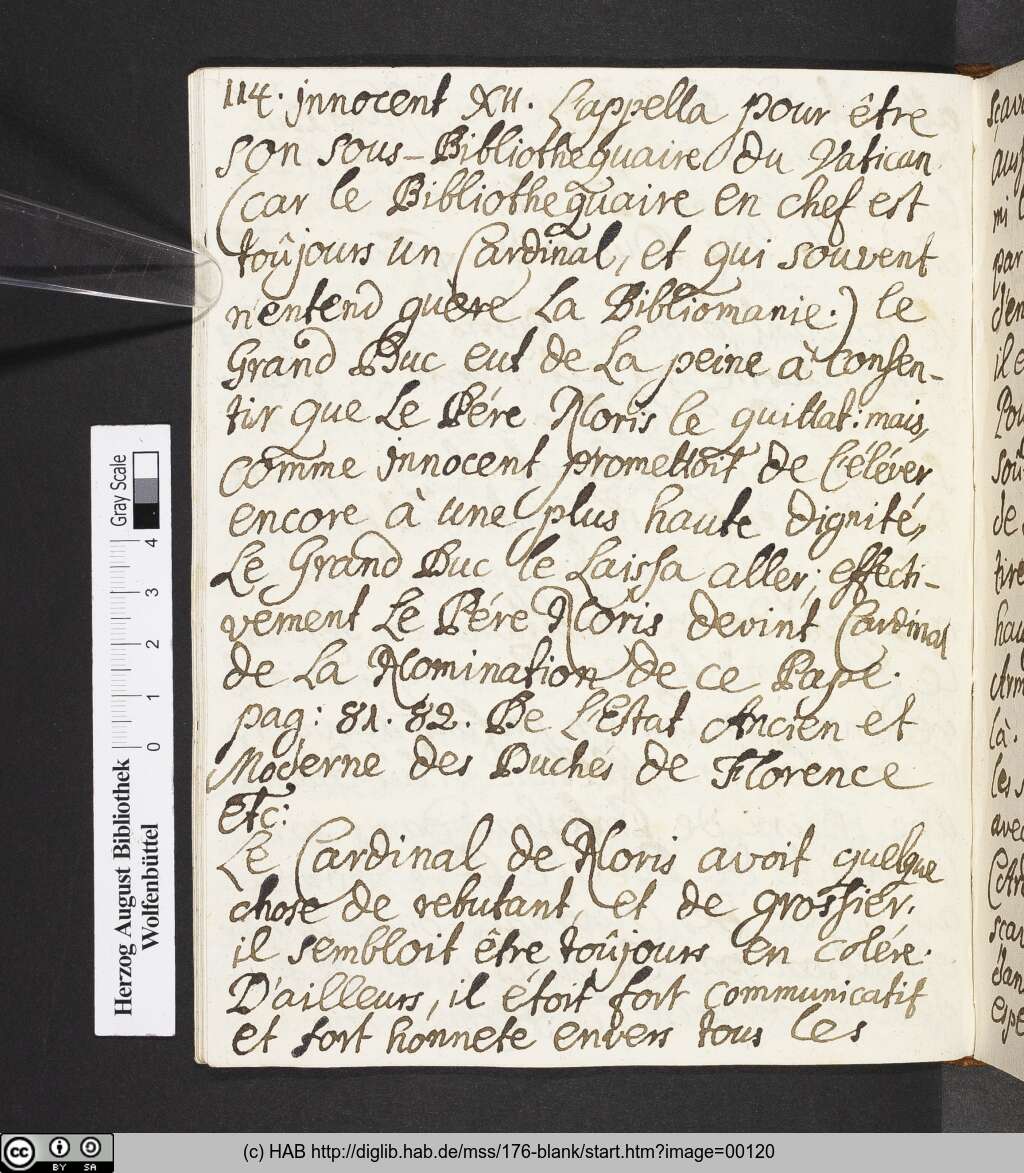 114. innocent XII. L'appella pour être
son sous-Bibliothequaire du Vatican
(car le Bibliothequaire en chef est
toûjours un Cardinal, et qui souvent
n'entend guère La Bibliomanie.) le
Grand Duc eut de La peine à consen-
tir que Le Pére Noris le quittat: mais,
comme innocent promettoit de l'éléver
encore à une plus haute dignité,
Le Grand Duc le Laissa aller; effecti-
vement Le Pére Noris devint Cardinal
de La Nomination de ce Pape.
pag: 81. 82. De L'Estat Ancien et
Moderne des Duchés de Florence
Etc:
Le Cardinal de Noris avoit quelque
chose de rebutant, et de grossier.
il sembloit être toûjours en colére.
D'ailleurs, il étoit fort communicatif
et fort honnete envers tous Les
Gray Scale
0 1 2 3 4
Herzog August Bibliothek
Wolfenbüttel
cc BY SA
(c) HAB http://diglib.hab.de/mss/176-blank/start.htm?image=00120